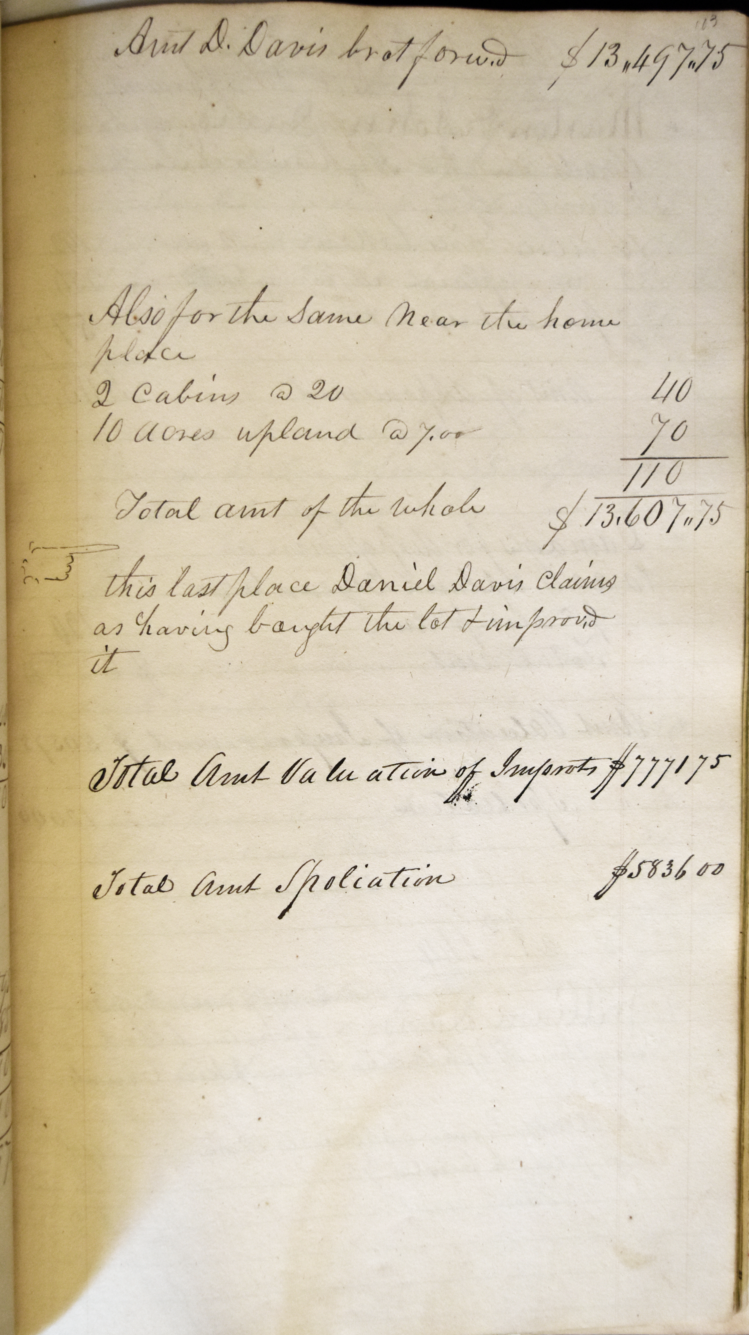 113
Amt D. Davis brot forwd $13,,497,,75
Also for the Same Near the home
place
2 Cabins @ 20 40
10 Acres upland @ 7.00 70
110
Total amt of the whole $13.607,,75
this last place Daniel Davis Claims
as having bought the lot & improvd
it
Total Amt Valuation of Improts $7771 75
Total Amt Spoliation $5836 00